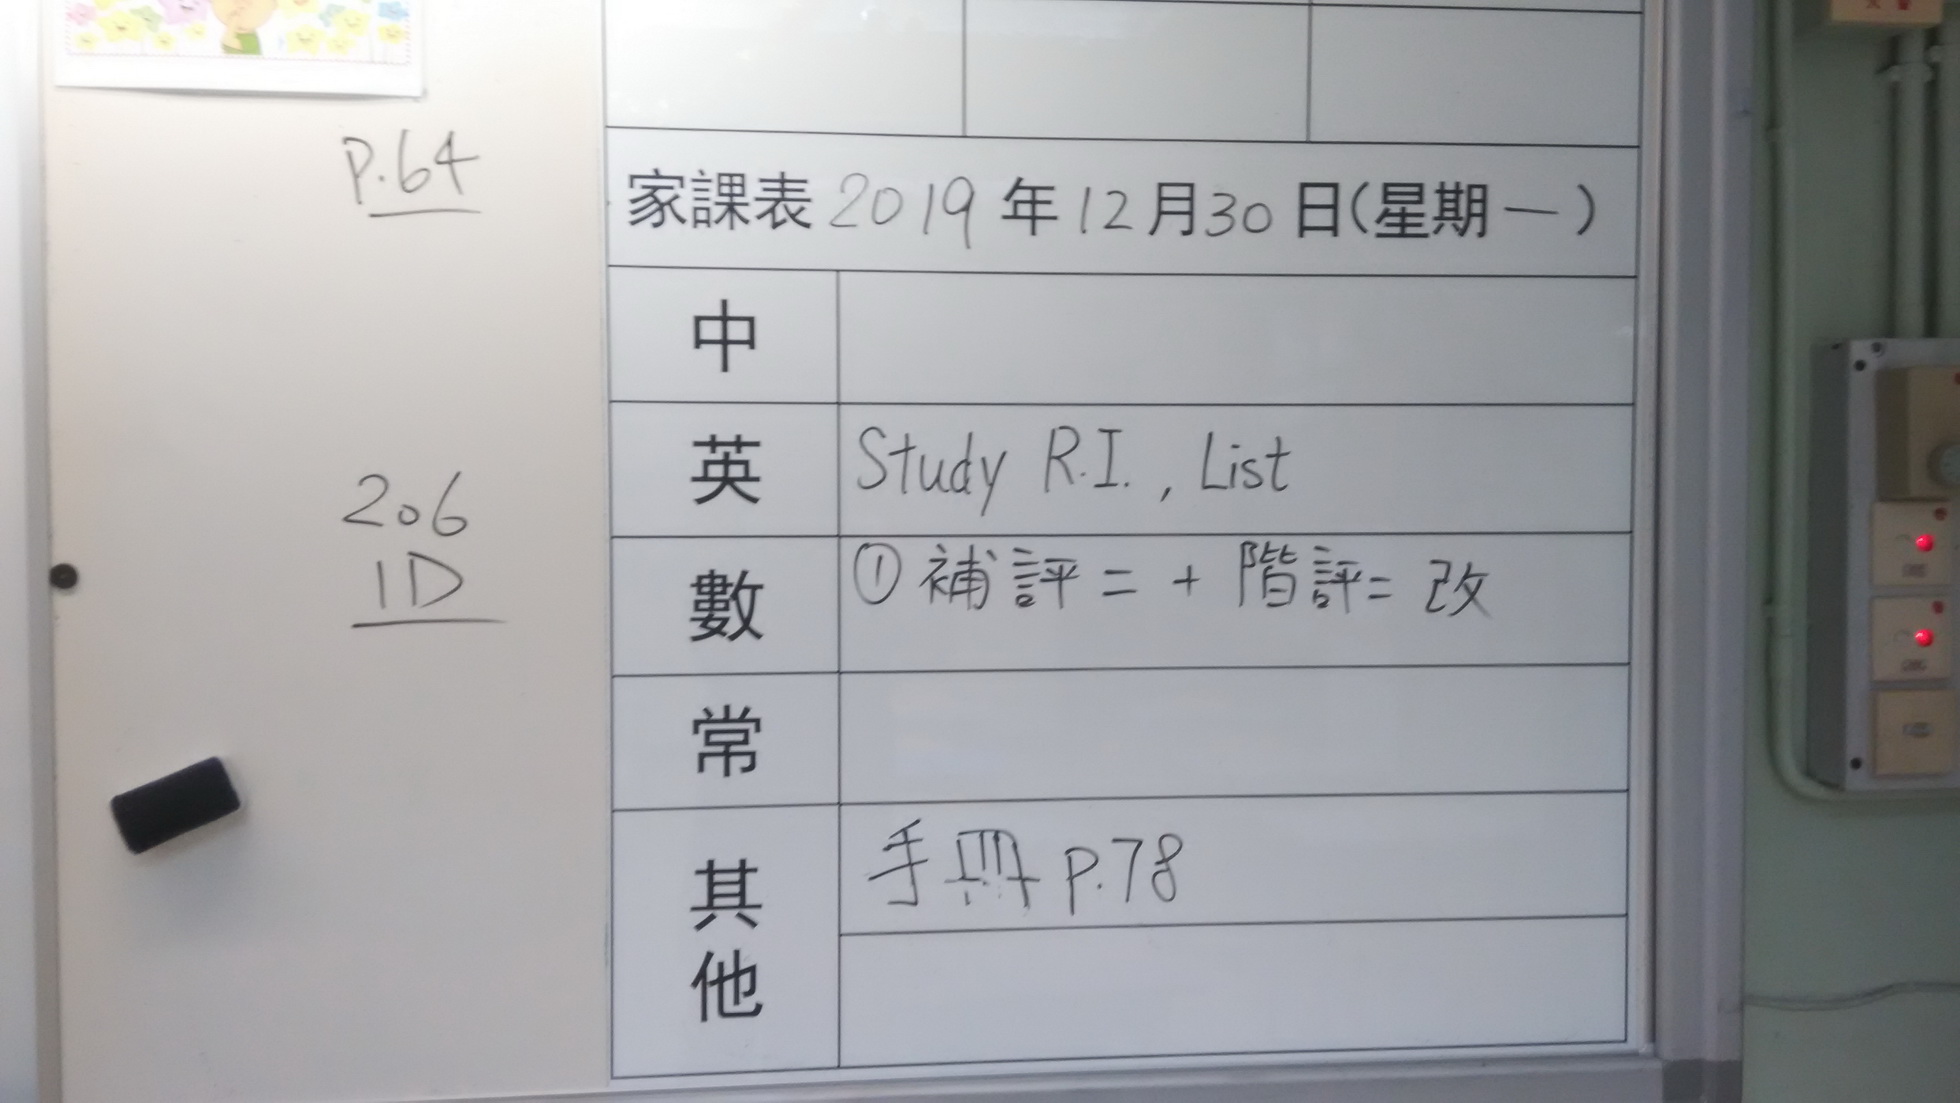 P.64
206
1D
家課表 2019 年 12 月 30 日(星期一)
中
英 Study R.I., List
數 ① 補評二 + 階評二 改
常
其他 手冊 P.78